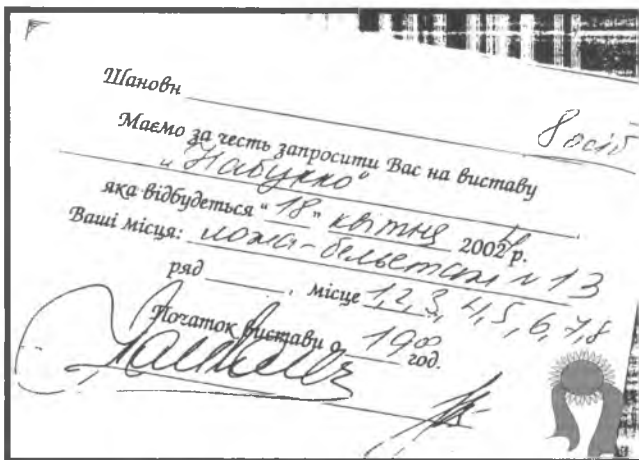 Шановн
8 осіб
Маємо за честь запросити Вас на виставу
„Набукко“
яка відбудеться “18” квітня 2002 р.
Ваші місця: ложа-бельетаж N 13
ряд , місце 1, 2, 3, 4, 5, 6, 7, 8
Початок вистави о 19 00 год.